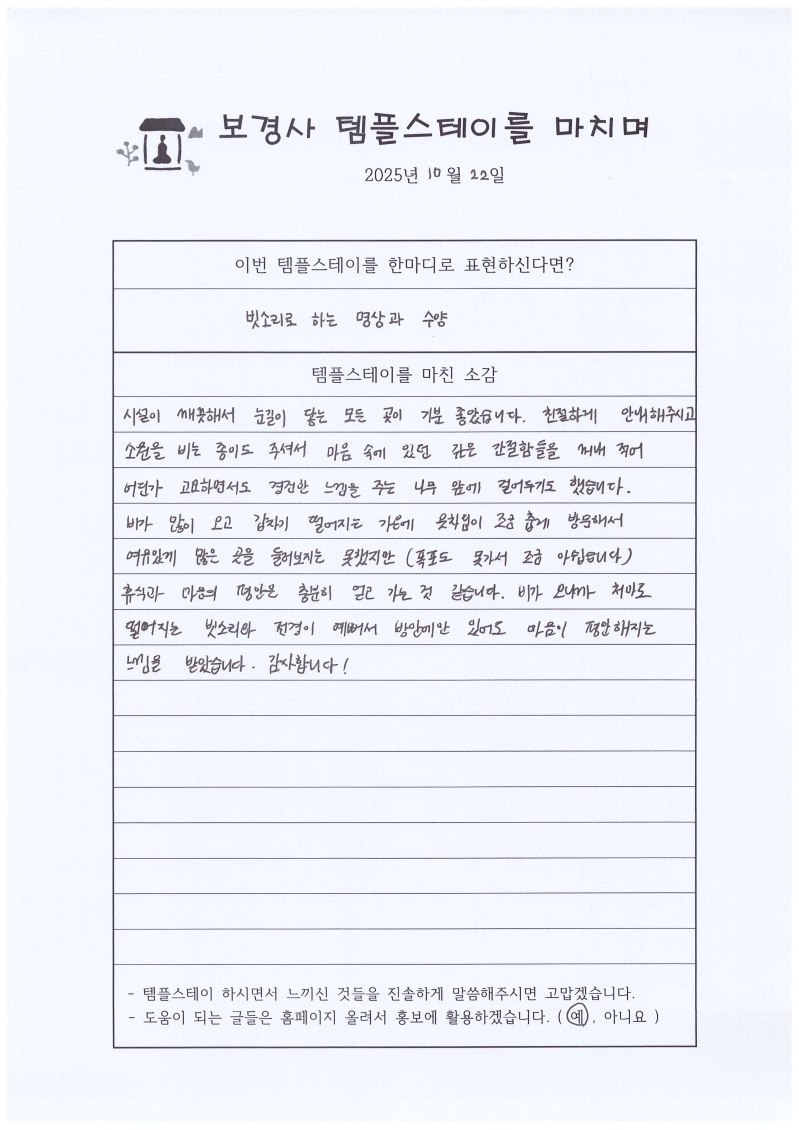 보경사 템플스테이를 마치며
2025년 10월 22일
이번 템플스테이를 한마디로 표현하신다면?
빗소리로 하는 명상과 수양
템플스테이를 마친 소감
시설이 깨끗해서 눈길이 닿는 모든 곳이 기분 좋았습니다. 친절하게 안내해주시고
소원을 비는 종이도 주셔서 마음 속에 있던 깊은 간절함들을 꺼내 적어
어딘가 고요하면서도 경건한 느낌을 주는 나무 앞에 걸어두기도 했습니다.
비가 많이 오고 갑자기 떨어지는 기온에 옷차림이 조금 춥게 방문해서
여유있게 많은 곳을 둘러보지는 못했지만 (폭포도 못가서 조금 아쉽습니다)
휴식과 마음의 평안은 충분히 얻고 가는 것 같습니다. 비가 오니까 처마로
떨어지는 빗소리와 전경이 예뻐서 방안에만 있어도 마음이 평안해지는
느낌을 받았습니다. 감사합니다!
- 템플스테이 하시면서 느끼신 것들을 진솔하게 말씀해주시면 고맙겠습니다.
- 도움이 되는 글들은 홈페이지 올려서 홍보에 활용하겠습니다. ( 예 , 아니요 )